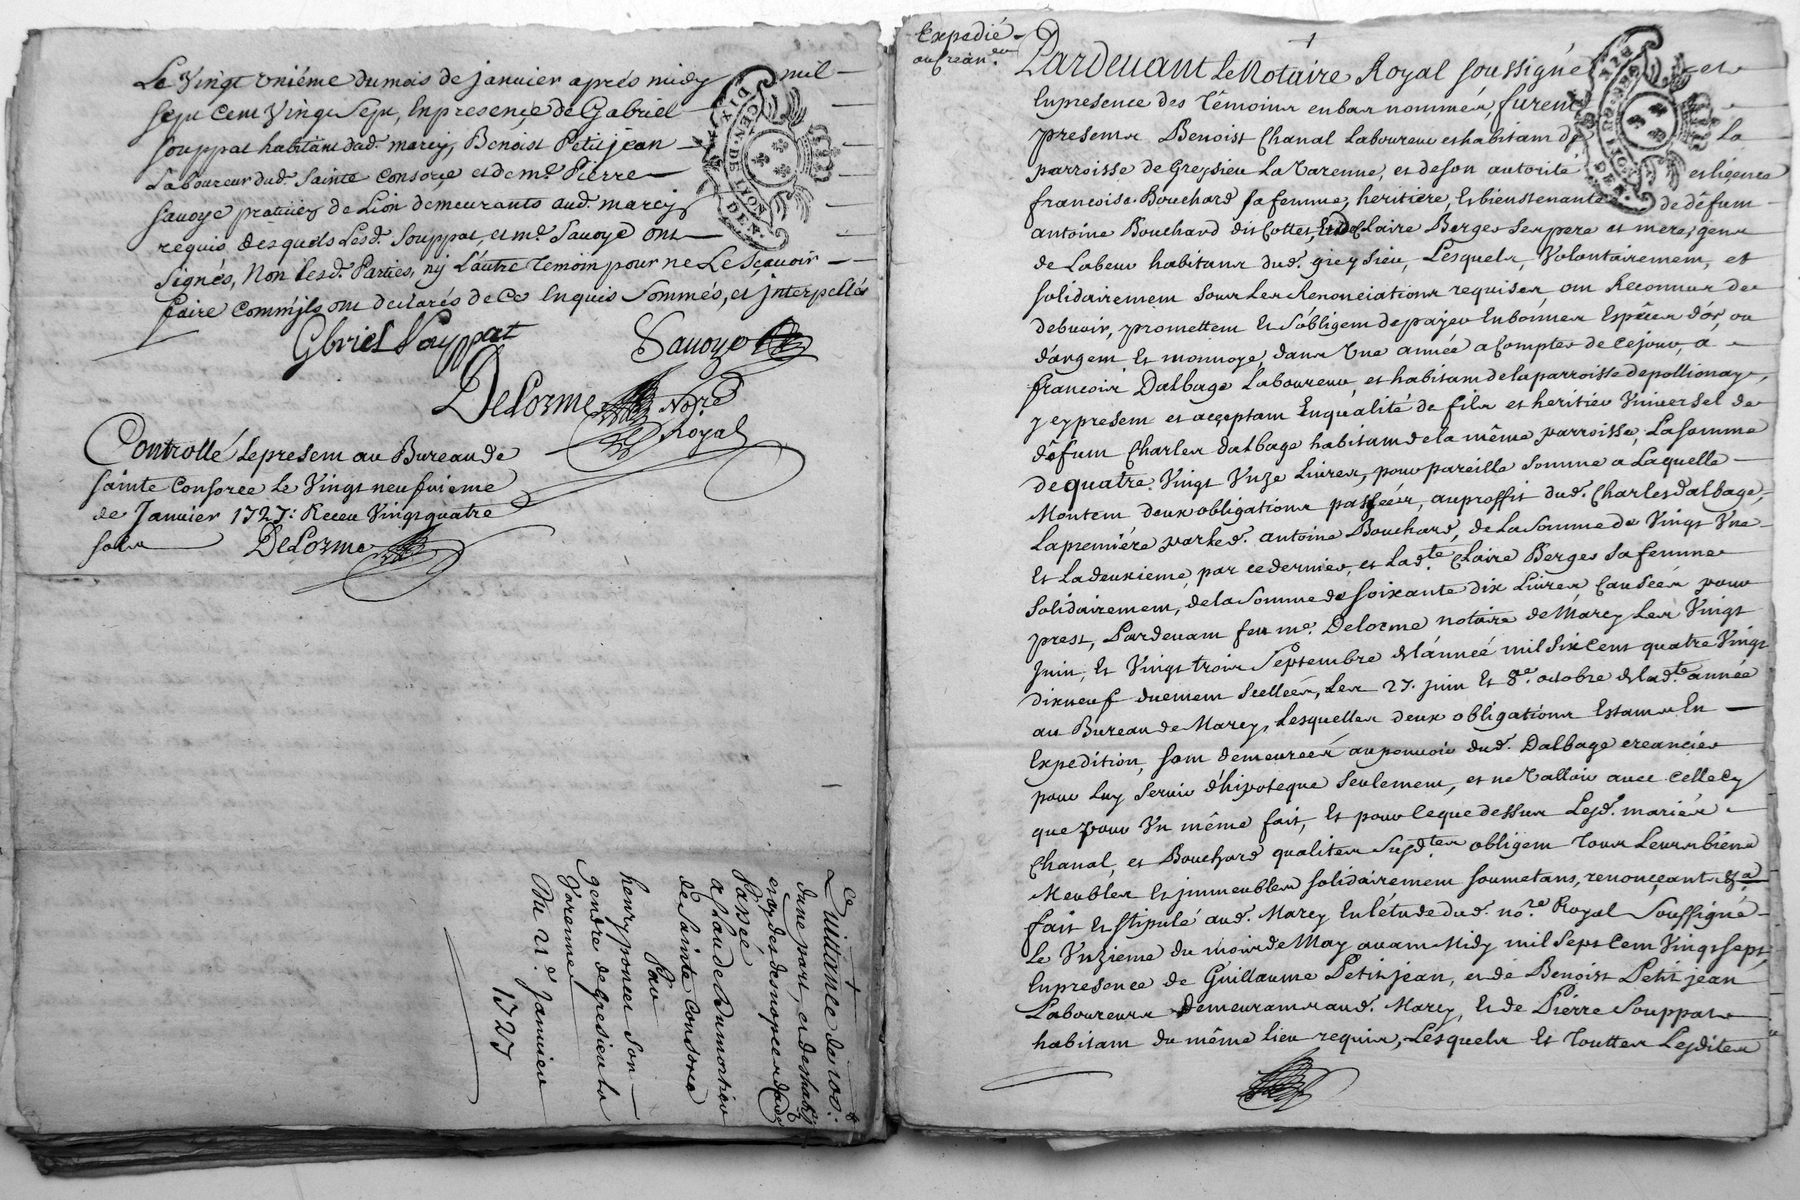 Le Vingt Uniéme du mois de janvier aprés midy mil
sept cent Vingt Sept, En presençe de Gabriel
Souppat habitant dud. marcy, Benoist Petitjean
Laboureur dud. Sainte Consorçe et de me. Pierre
Savoye praticien de Lion demeurants aud. marcy
requis, desquels Lesd. Souppat, et me. Savoye ont
Signés, Non Lesd. Parties, ny L'autre temoin pour ne Le Sçavoir
faire comm'ils ont declarés de Ce Enquis Sommés, et jnterpellés
Gbriel Souppat Savoye
DeLorme Nore.
Royal
Controllé Le present au Bureau de
sainte Consorce Le Vingt neufvieme
de Janvier 1727: Receu Vingt quatre
sols DeLorme
Quittance de 100:
d'une part, et des habits
et aydes de nopces dandé
Passée
a Claude Dumortier
de Sainte Consorce
Par
henry poncet Son
gendre de Gresieu la
Varenne
Du 21e. Janvier
1727
GEN. DE LION
DIX DEN.
Expedié
au Crean.er
Pardevant Le Notaire Royal soussigné et
En presence des Témoins en bas nommés, furent
presents Benoist Chanal Laboureur et habitant de La
parroisse de Greysieu La Varenne, et de son autorité et ligence
françoise Bouchard sa femme, heritiere, Et bienstenante de défunt
antoine Bouchard dit Cottet, Et de Claire Berger Ses pere et mere, gens
de Labeur habitans dud. greysieu, Lesquels, Volontairement, et
solidairement sous Les Renonciations requises, ont Reconnus de
debvoir, promettent Et s'obligent de payer En bonnes Espèces d'or, ou
d'argent Et monnoye, dans Une année a Compter de cejour, a
françois Dalbage Laboureur, et habitant de la parroisse de pollionay,
y cy present et acçeptant En qualité de fils et heritier Universel de
défunt Charles Dalbage habitant de la même parroisse, La somme
de quatre Vingt Unze Livres, pour pareille Somme a Laquelle
Montent deux obligations passées, au proffit dud. Charles Dalbage,
La premiére par led. antoine Bouchard, de La Somme de Vingt Une
Et La deuxieme, par ce dernier, et Lad.te Claire Berger Sa femme
Solidairement, de la Somme de soixante dix Livres Causées pour
prest, Pardevant feu me. Delorme notaire de Marcy Les Vingt
Juin, Et Vingt trois Septembre de l'année mil Six Cent quatre Vingt
dix neuf duement Scellées, Les 27. juin Et 8e. octobre de lad.te année
au Bureau de Marcy, Lesquelles deux obligations Estants En
Expedition, sont demeurées au pouvoir dud. Dalbage creancier
pour Luy Servir d'hipoteque Seulement, et ne Valloir avec Celle Cy
que pour Un même fait, Et pour Ce que dessus Lesd. mariés
Chanal, et Bouchard qualités Susd.tes obligent Tous Leurs biens
Meubles Et jmmeubles solidairement soumetans, renonçant &a
fait Et stipulé aud. Marcy En l'étude dud. nore. Royal Soussigné
Le Unzieme du mois de May avant Midy mil Sept Cent Vingt Sept,
En presence de Guillaume Petitjean, et de Benoist Petitjean
Laboureurs demeurants aud. Marcy, Et de Pierre Souppat
habitant du même Lieu requis, Lesquels Et Touttes Lesdites